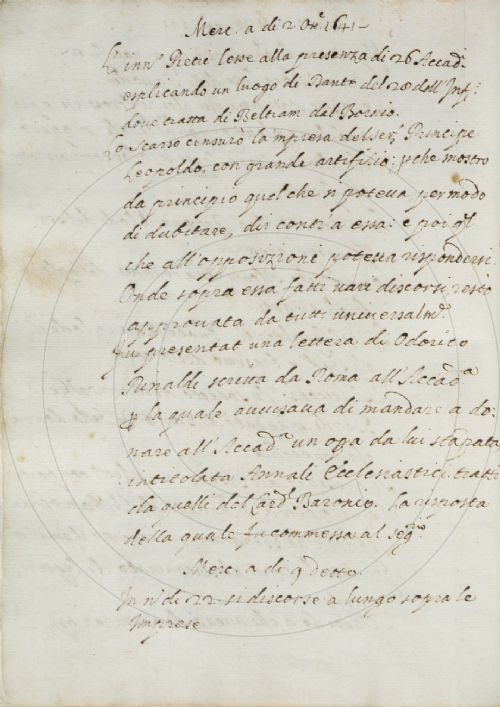 Merc. a di 2 Ott.e 1641
L'inn.o Pieri lesse alla presenza di 26 Accad.i
esplicando un luogo di Dante del 28 dell'Inf.
doue tratta di Beltram dal Bornio.
Lo Scarso censurò la impresa del Ser. Principe
Leopoldo, con grande artifizio: pche mostro
da principio quel che si poteua per modo
di dubitare, dir contra essa: e poi ql
che all'opposizioni poteua rispondersi.
Onde sopra essa fatti uari discorsi, restò
approuata da tutti uniuersalm.e
Fu presentat una lettera di Odorico
Rinaldi scritta da Roma all'Accad.a
p la quale auuisaua di mandare a do-
nare all'Accad.a un opa da lui stāpata
intitolata Annali Ecclesiastici tratti
da quelli del Card.l Baronio. La risposta
della quale fu commessa al seg.rio
Merc. a di 9 detto.
In n.o di 22 si discorse a lungo sopra le
Imprese